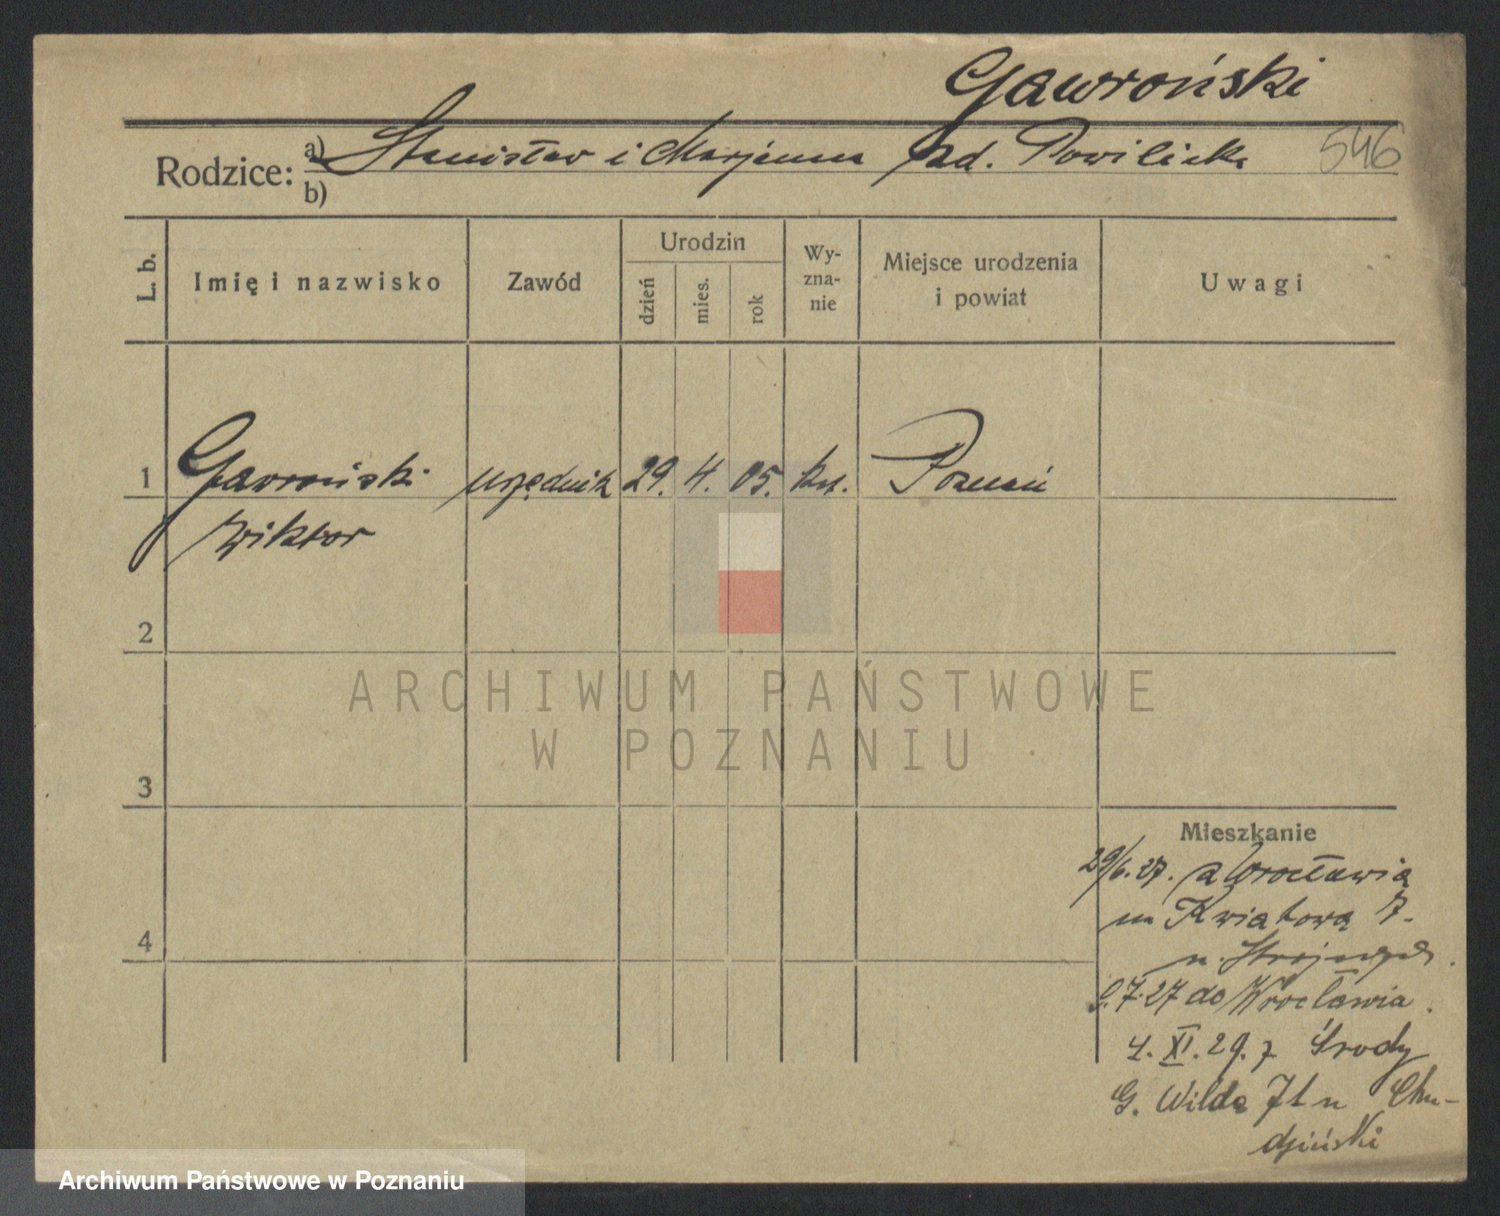 Gawroński
546
Rodzice: a) Stanisław i Marjanna
b)
L. b.
Imię i nazwisko
Zawód
Urodzin
dzień
mies.
rok
Wy-
zna-
nie
Miejsce urodzenia
i powiat
Uwagi
1 Gawroński urzędnik 29. 4. 05. kat. Poznań
Wiktor
2
3
4
ARCHIWUM PAŃSTWOWE
W POZNANIU
Mieszkanie
29/6.27. z Wrocławia
na Kwiatową 7.
2.7.27 do Wrocławia.
4. XI. 29. z Środy
G. Wilda 71 u Chu-
dziński
Archiwum Państwowe w Poznaniu